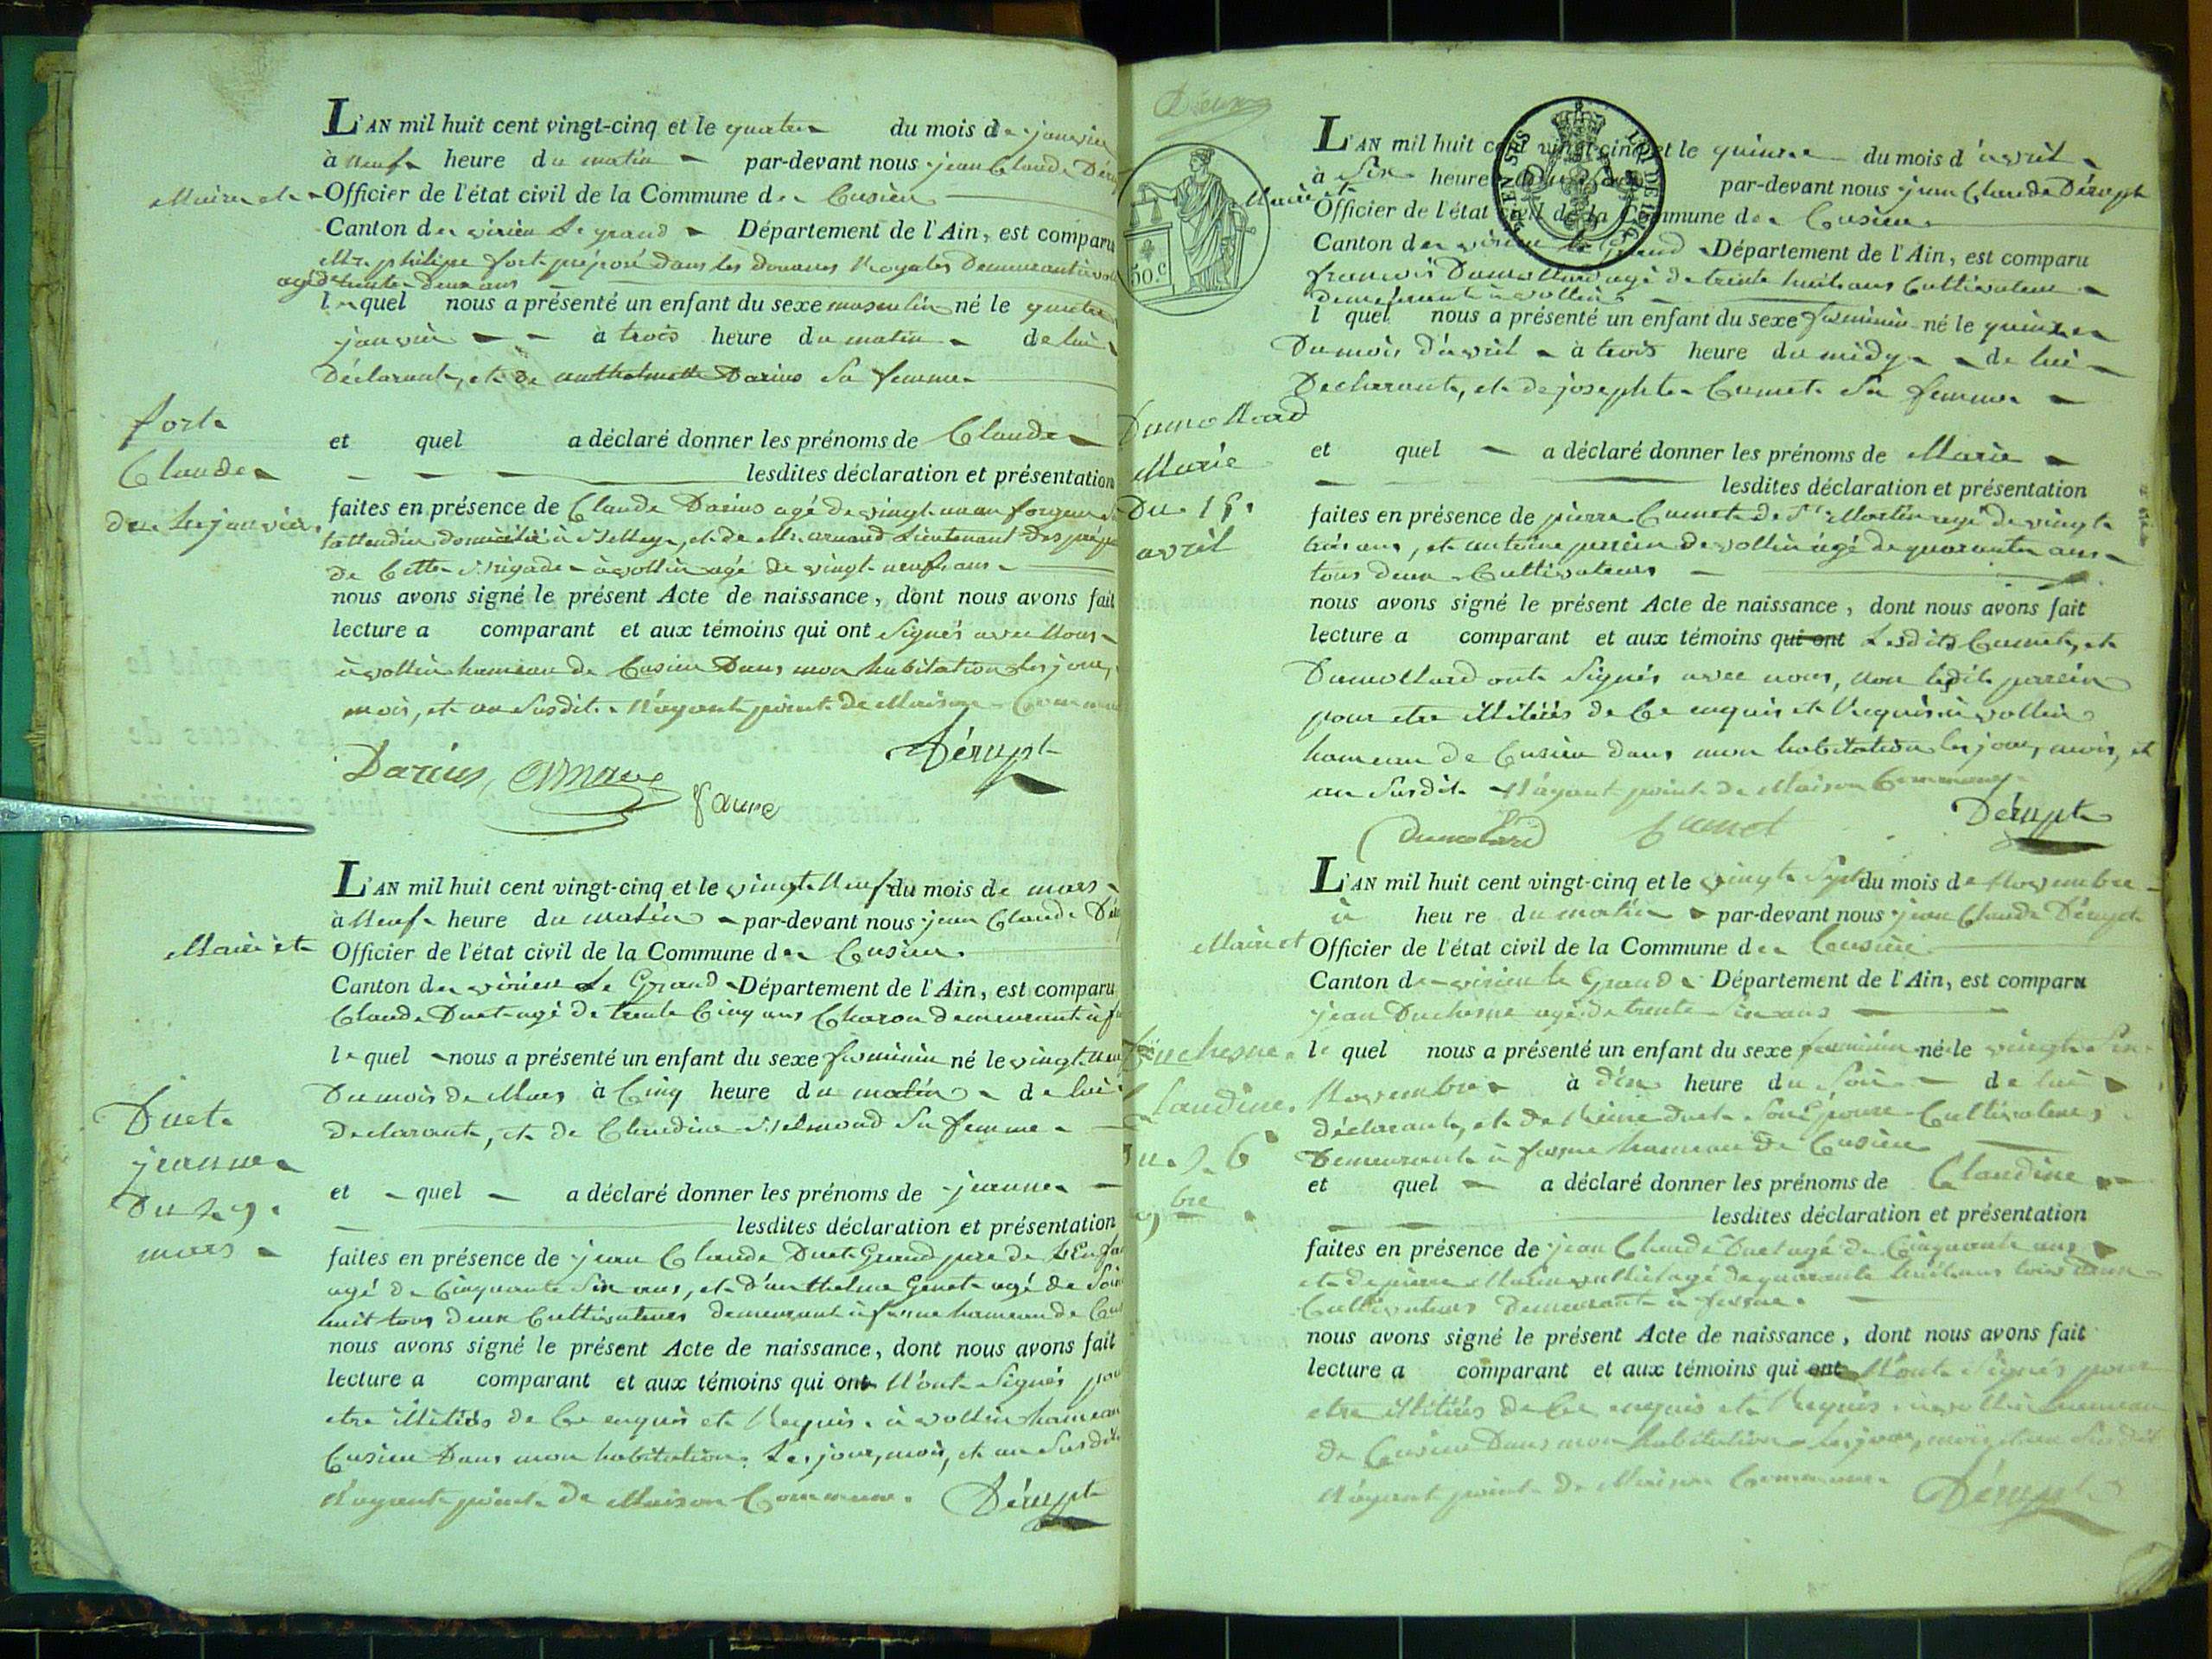 L'AN mil huit cent vingt-cinq et le quatre du mois de janvier
à neuf heure du matin par-devant nous jean Claude
Maire et Officier de l'état civil de la Commune de Cusieu
Canton de virieu le grand Département de l'Ain, est comparu
Mr. philipe fort préposé dans les douanes Royales Demeurant à
agé de trente deux ans
le quel nous a présenté un enfant du sexe masculin né le quatre
janvier à trois heure du matin de lui
Déclarant, et de anthelmette Darius sa femme
fort
Claude
du 4 janvier
et quel a déclaré donner les prénoms de Claude
lesdites déclaration et présentation
faites en présence de Claude Darius agé de vingt un an
domicilié à Belley, et de Mr. arnaud Lieutenant
de Cette Brigade à vollin agé de vingt neuf ans
nous avons signé le présent Acte de naissance, dont nous avons fait
lecture a comparant et aux témoins qui ont signés avec Nous
à vollin hameau de Cusieu Dans mon habitation les jour,
mois, et an susdit N'ayant point de Maison
Darius, Dérupt
L'AN mil huit cent vingt-cinq et le vingt Neuf du mois de mars
à Neuf heure du matin par-devant nous jean Claude
Maire et Officier de l'état civil de la Commune de Cusieu
Canton de virieu le Grand Département de l'Ain, est comparu
Claude Duet agé de trente Cinq ans Charon demeurant à
le quel nous a présenté un enfant du sexe feminin né le vingt
Du mois de Mars à Cinq heure du matin de lui
Declarant, et de Claudine Belmond sa femme
Duet
jeanne
Du 29
mars
et quel a déclaré donner les prénoms de jeanne
lesdites déclaration et présentation
faites en présence de jean Claude Duet Grand pere de
agé de Cinquante Six ans, et d'anthelme Genet agé de
huit tous deux Cultivateurs demeurant à hameau de
nous avons signé le présent Acte de naissance, dont nous avons fait
lecture a comparant et aux témoins qui ont N'ont Signés
etre illitérés de Ce enquis et Requis à vollin hameau
Cusieu Dans mon habitation Les jour, mois, et an susdit
N'ayant point de Maison Commune. Dérupt
50.C
L'AN mil huit cent vingt-cinq et le quinze du mois d'avril
à Six heure par-devant nous jean Claude Dérupt
Maire et
Officier de l'état civil de la Commune de Cusieu
Canton de virieu le grand Département de l'Ain, est comparu
francois Dumollard agé de trente huit ans Cultivateur
demeurant à vollin
l quel nous a présenté un enfant du sexe feminin né le quinze
Du mois d'avril à trois heure du midy de lui
Declarant, et de josephte Cumet sa femme
Dumollard
Marie
Du 15
avril
et quel a déclaré donner les prénoms de Marie
lesdites déclaration et présentation
faites en présence de pierre Cumet de St Martin agé de vingt
trois ans, et antoine perrin de vollin agé de quarante ans
tous deux Cultivateurs
nous avons signé le présent Acte de naissance, dont nous avons fait
lecture a comparant et aux témoins qui ont Lesdits Cumet, et
Dumollard ont Signés avec nous, non ledit perrin
pour etre illitérés de Ce enquis et Requis à vollin
hameau de Cusieu dans mon habitation les jour, mois, et
an Susdit N'ayant point de Maison Commune
Dumolard Cumet Dérupt
L'AN mil huit cent vingt-cinq et le vingt Sept du mois de Novembre
à heure du matin par-devant nous jean Claude Dérupt
Maire et Officier de l'état civil de la Commune de Cusieu
Canton de virieu le Grand Département de l'Ain, est comparu
jean Duchesne agé de trente Six ans
le quel nous a présenté un enfant du sexe feminin né le vingt Six
Novembre à dix heure du Soir de lui
déclarant, et de Reine Duet Son Epouse Cultivateurs
Demeurant à hameau de Cusieu
Duchesne
Claudine
Du 26
9bre
et quel a déclaré donner les prénoms de Claudine
lesdites déclaration et présentation
faites en présence de jean Claude Duet agé de Cinquante ans
et de pierre Marie agé de quarante huit ans tous deux
Cultivateurs Demeurant à
nous avons signé le présent Acte de naissance, dont nous avons fait
lecture a comparant et aux témoins qui ont N'ont Signés pour
etre illitérés de Ce enquis et Requis à vollin hameau
de Cusieu Dans mon habitation les jour, mois et an Susdit
N'ayant point de Maison Commune Dérupt